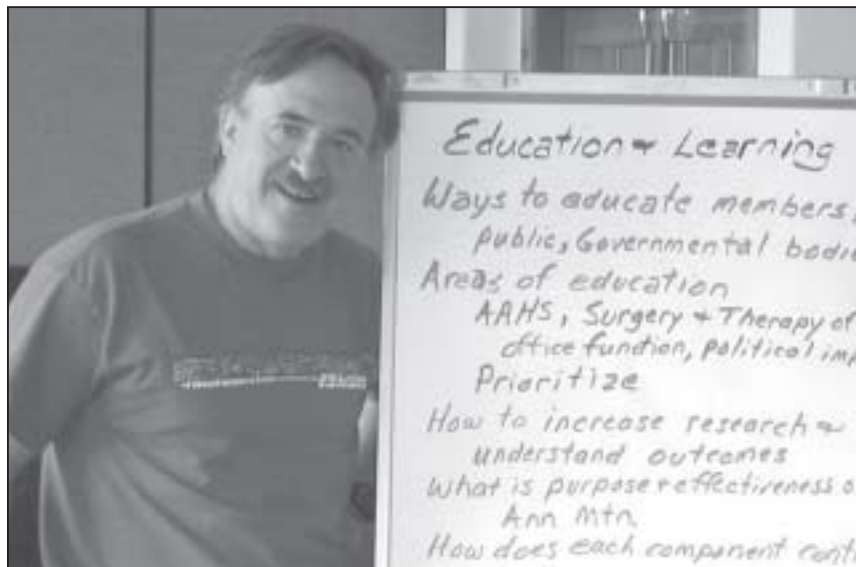 Education + Learning
Ways to educate members,
public, Governmental bodie
Areas of education
AAHS, Surgery + Therapy of
office function, political imp
Prioritize
How to increase research +
understand outcomes
What is purpose + effectiveness o
Ann Mtn.
How does each component conti